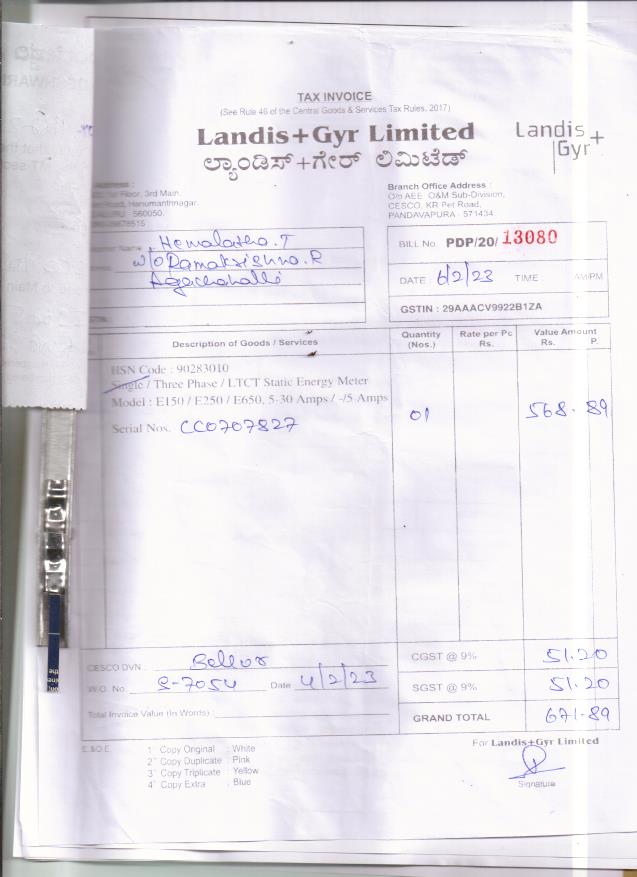 TAX INVOICE
(See Rule 46 of the Central Goods & Services Tax Rules, 2017)
Landis+Gyr Limited
ಲ್ಯಾಂಡಿಸ್+ಗೇರ್ ಲಿಮಿಟೆಡ್
Landis+
Gyr
Floor, 3rd Main,
Road, Hanumanthnagar,
560050.
Branch Office Address :
O/o AEE O&M Sub-Division,
CESCO, KR Pet Road,
PANDAVAPURA - 571434
Name Hemalatha.T
W/o Ramakrishna.R
Agachahalli
BILL No. PDP/20/ 13080
DATE : 6/2/23 TIME : AM/PM
GSTIN : 29AAACV9922B1ZA
Description of Goods / Services
Quantity (Nos.)
Rate per Pc Rs.
Value Amount Rs. P.
HSN Code : 90283010
Single / Three Phase / LTCT Static Energy Meter
Model : E150 / E250 / E650, 5-30 Amps / -/5 Amps
Serial Nos. CC0707827
01
568.89
CESCO DVN : Bellur
W.O. No. S-7054 Date 4/2/23
Total Invoice Value (In Words) :
CGST @ 9% 51.20
SGST @ 9% 51.20
GRAND TOTAL 671-89
E.&O.E.
1st Copy Original : White
2nd Copy Duplicate : Pink
3rd Copy Triplicate : Yellow
4th Copy Extra : Blue
For Landis+Gyr Limited
Signature